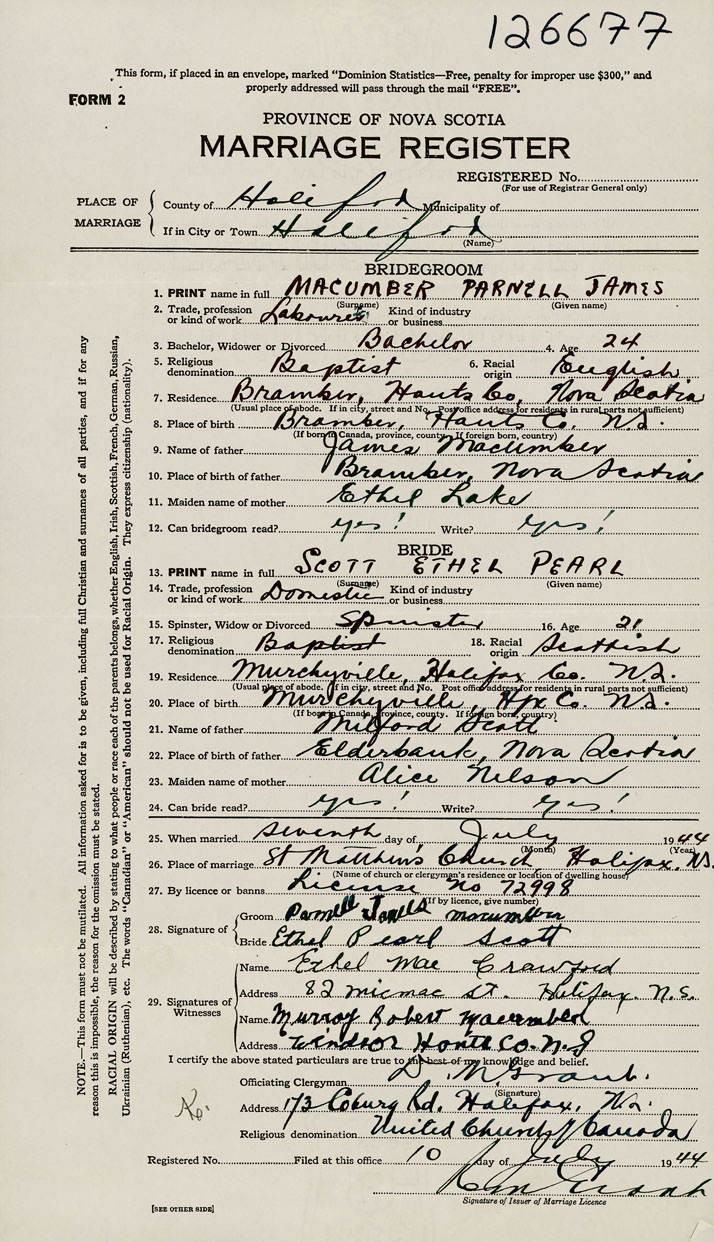 126677
This form, if placed in an envelope, marked "Dominion Statistics—Free, penalty for improper use $300," and
properly addressed will pass through the mail "FREE".
FORM 2
PROVINCE OF NOVA SCOTIA
MARRIAGE REGISTER
REGISTERED No.
(For use of Registrar General only)
PLACE OF MARRIAGE
County of Halifax Municipality of
If in City or Town Halifax
(Name)
BRIDEGROOM
1. PRINT name in full MACUMBER PARNELL JAMES
(Surname) (Given name)
2. Trade, profession or kind of work Labourer Kind of industry or business
3. Bachelor, Widower or Divorced Bachelor 4. Age 24
5. Religious denomination Baptist 6. Racial origin English
7. Residence Bramber, Hants Co, Nova Scotia
(Usual place of abode. If in city, street and No. Post office address for residents in rural parts not sufficient)
8. Place of birth Bramber, Hants Co. N.S.
(If born in Canada, province, county. If foreign born, country)
9. Name of father James Macumber
10. Place of birth of father Bramber, Nova Scotia
11. Maiden name of mother Ethel Lake
12. Can bridegroom read? yes! Write? yes!
BRIDE
13. PRINT name in full SCOTT ETHEL PEARL
(Surname) (Given name)
14. Trade, profession or kind of work Domestic Kind of industry or business
15. Spinster, Widow or Divorced Spinster 16. Age 21
17. Religious denomination Baptist 18. Racial origin Scottish
19. Residence Murchyville, Halifax Co. N.S.
(Usual place of abode. If in city, street and No. Post office address for residents in rural parts not sufficient)
20. Place of birth Murchyville, Hfx Co. N.S.
(If born in Canada, province, county. If foreign born, country)
21. Name of father Milford Scott
22. Place of birth of father Elderbank, Nova Scotia
23. Maiden name of mother Alice Nelson
24. Can bride read? yes! Write? yes!
25. When married seventh day of July 1944
(Month) (Year)
26. Place of marriage St Matthew's Church Halifax, N.S.
(Name of church or clergyman's residence or location of dwelling house)
27. By licence or banns License no 72998
(If by licence, give number)
28. Signature of
Groom Parnell James macumber
Bride Ethel Pearl Scott
29. Signatures of Witnesses
Name Ethel Mae Crawford
Address 82 micmac st. Halifax. N.S.
Name Murray Robert macumber
Address Windsor Hants Co. N.S
I certify the above stated particulars are true to the best of my knowledge and belief.
Officiating Clergyman D. M. Grant.
(Signature)
Address 173 Coburg Rd. Halifax, N.S.
Religious denomination United Church of Canada
Registered No. Filed at this office 10 day of July 1944
Signature of Issuer of Marriage Licence
[SEE OTHER SIDE]
NOTE.—This form must not be mutilated. All information asked for is to be given, including full Christian and surnames of all parties, and if for any
reason this is impossible, the reason for the omission must be stated.
RACIAL ORIGIN will be described by stating to what people or race each of the parents belongs, whether English, Irish, Scottish, French, German, Russian,
Ukrainian (Ruthenian), etc. The words "Canadian" or "American" should not be used for Racial Origin. They express citizenship (nationality).